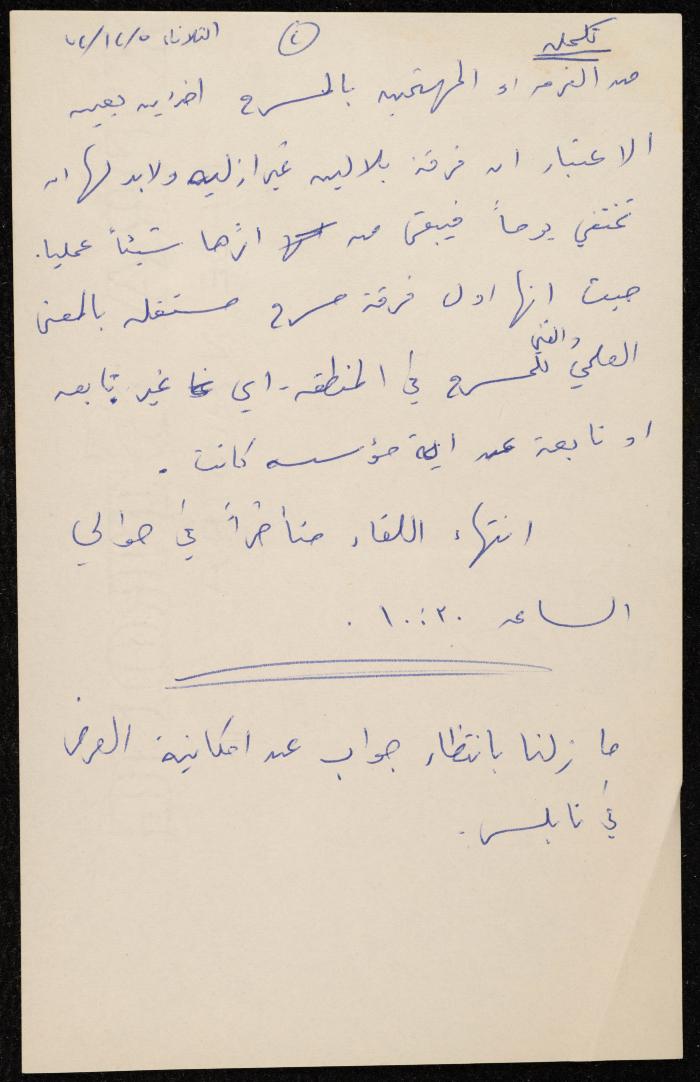 تكملة ② الثلاثاء ٧٢/١٢/٥
من الفرق او المهتمين بالمسرح اخذين بعين
الاعتبار ان فرقة بلالين غير ازليه ولابد لها ان
تختفي يوماً فيبقى من اثرها شيئاً عمليا.
حيث انها اول فرقة مسرح مستقله بالمعنى
العلمي والفني للمسرح في المنطقه - اي غير تابعه
او نابعة عن اية مؤسسه كانت .
انتهاء اللقاء متأخراً في حوالي
الساعه ١٠:٣٠ .
ما زلنا بانتظار جواب عن امكانية العرض
في نابلس .